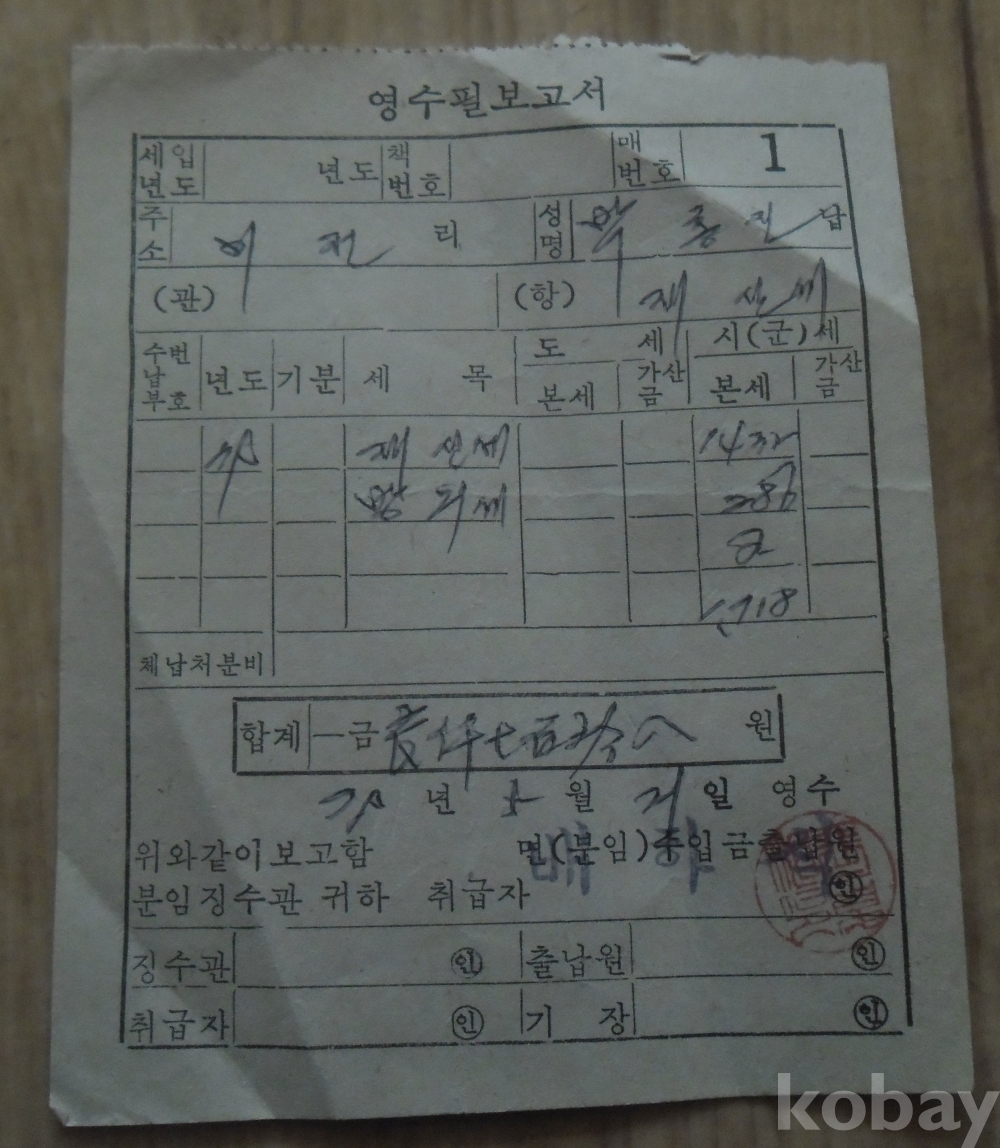 영수필보고서
세입년도 년도 책번호 매번호 1
주소 이전 리 성명 박종진 납
(관) (항) 재산세
수납부번호 년도 기분 세목 도세 본세 가산금 시(군)세 본세 가산금
재산세 1432
방위세 286
1718
체납처분비
합계 一金 壹仟七百拾八 원
년 월 일 영수
위와같이보고함 면(분임)수입금출납원
분임징수관 귀하 취급자 배 하 인
징수관 인 출납원 인
취급자 인 기장 인
kobay